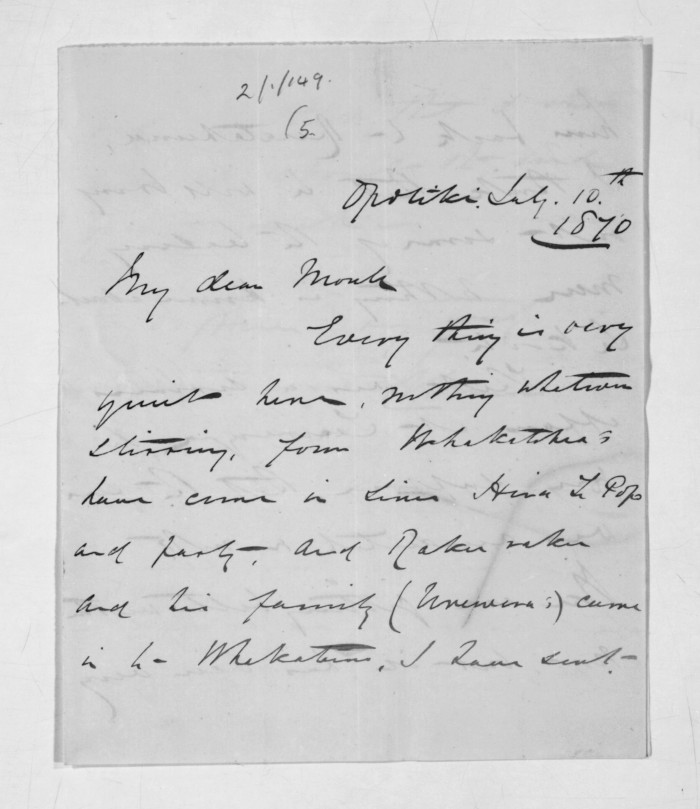 2/1/149.
(5
Opotiki. July. 10.th
1870
My dear
Every thing is very
quiet here, nothing whatever
stirring, four Whakatohea's
have come in since Hira Te Popo
and party, and Rakuraku
and his family (Urewera's) came
in to Whakatane, I have sent